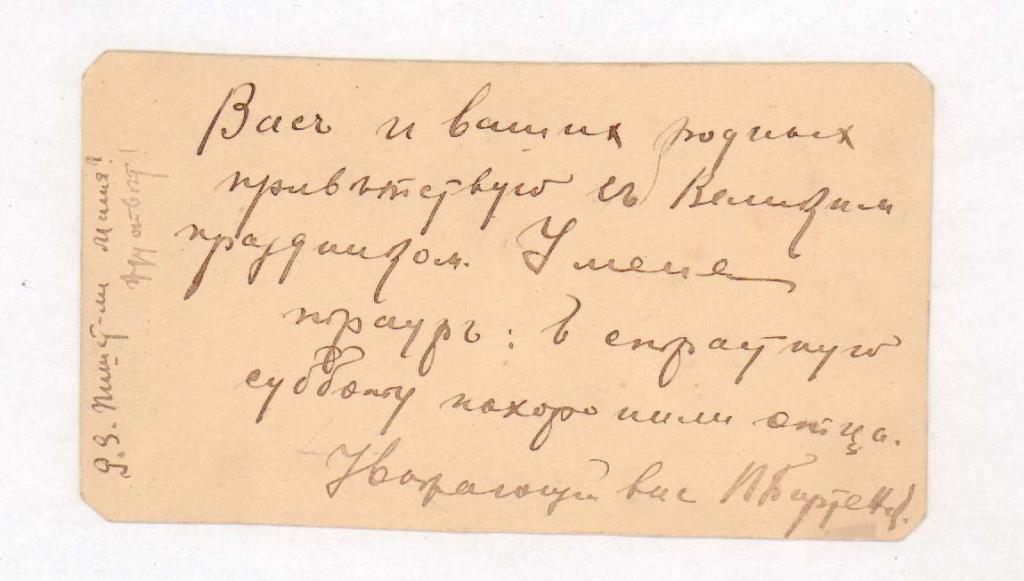 Васъ и вашихъ родныхъ
привѣтствую съ Великимъ
праздникомъ. У меня
трауръ: в страстную
субботу похоронили отца.
Уважающій вас П Бартенев.
P.S. Пишет-ли Маша?